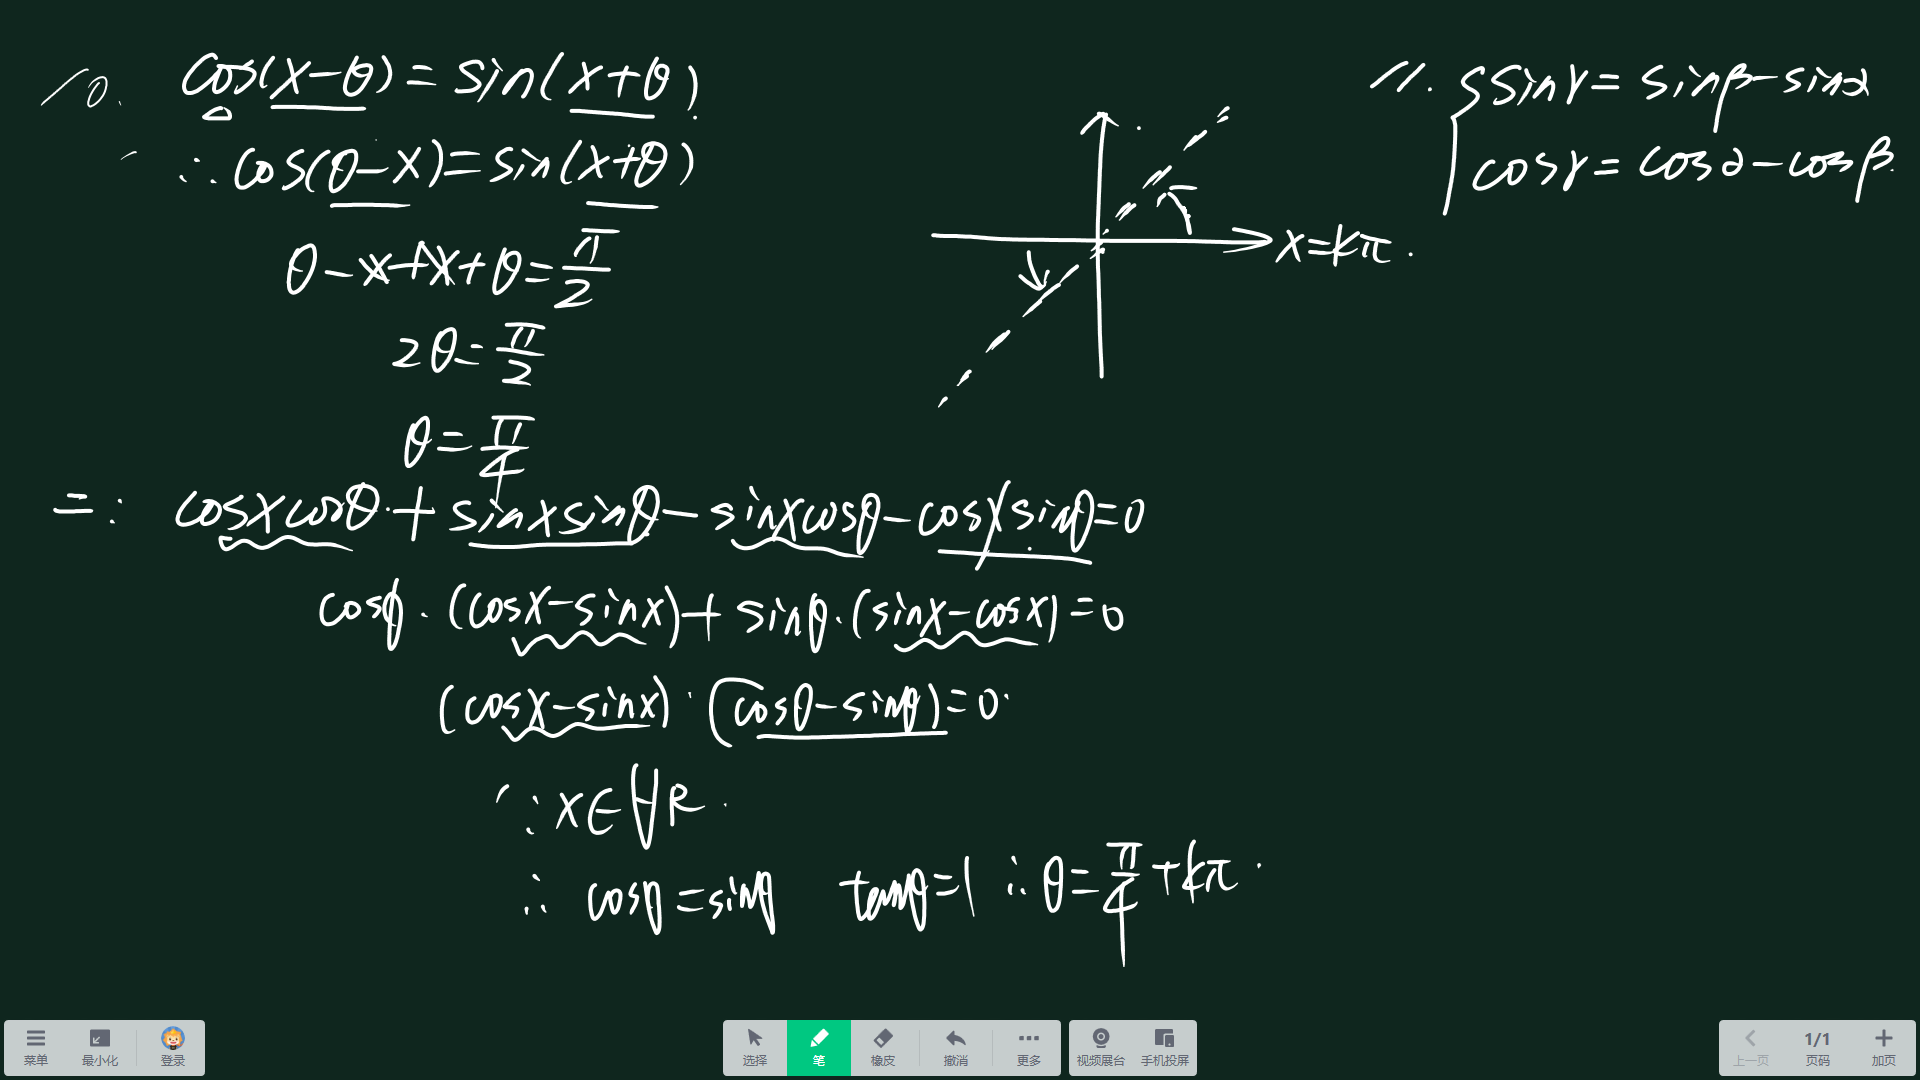 10. cos(x-θ)=sin(x+θ).
∴cos(θ-x)=sin(x+θ)
θ-x+x+θ=π/2
2θ=π/2
θ=π/4
二: cosxcosθ+sinxsinθ-sinxcosθ-cosxsinθ=0
cosθ·(cosx-sinx)+sinθ·(sinx-cosx)=0
(cosx-sinx)·(cosθ-sinθ)=0.
∵x∈∀R.
∴cosθ=sinθ tanθ=1 ∴θ=π/4+kπ.
x=kπ.
11. {sinγ=sinβ-sinα
cosγ=cosα-cosβ.
菜单 最小化 登录 选择 笔 橡皮 撤消 更多 视频展台 手机投屏 上一页 1/1 页码 加页